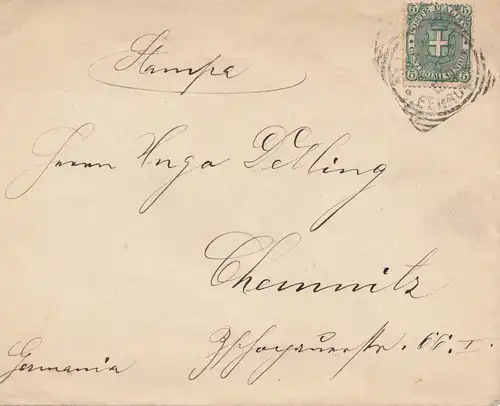 Stampa
5 POSTE ITALIANE 5
5 CINQUE CENTESIMI 5
Herrn Hugo Delling
Chemnitz
Zschopauerstr. 66. I.
Germania